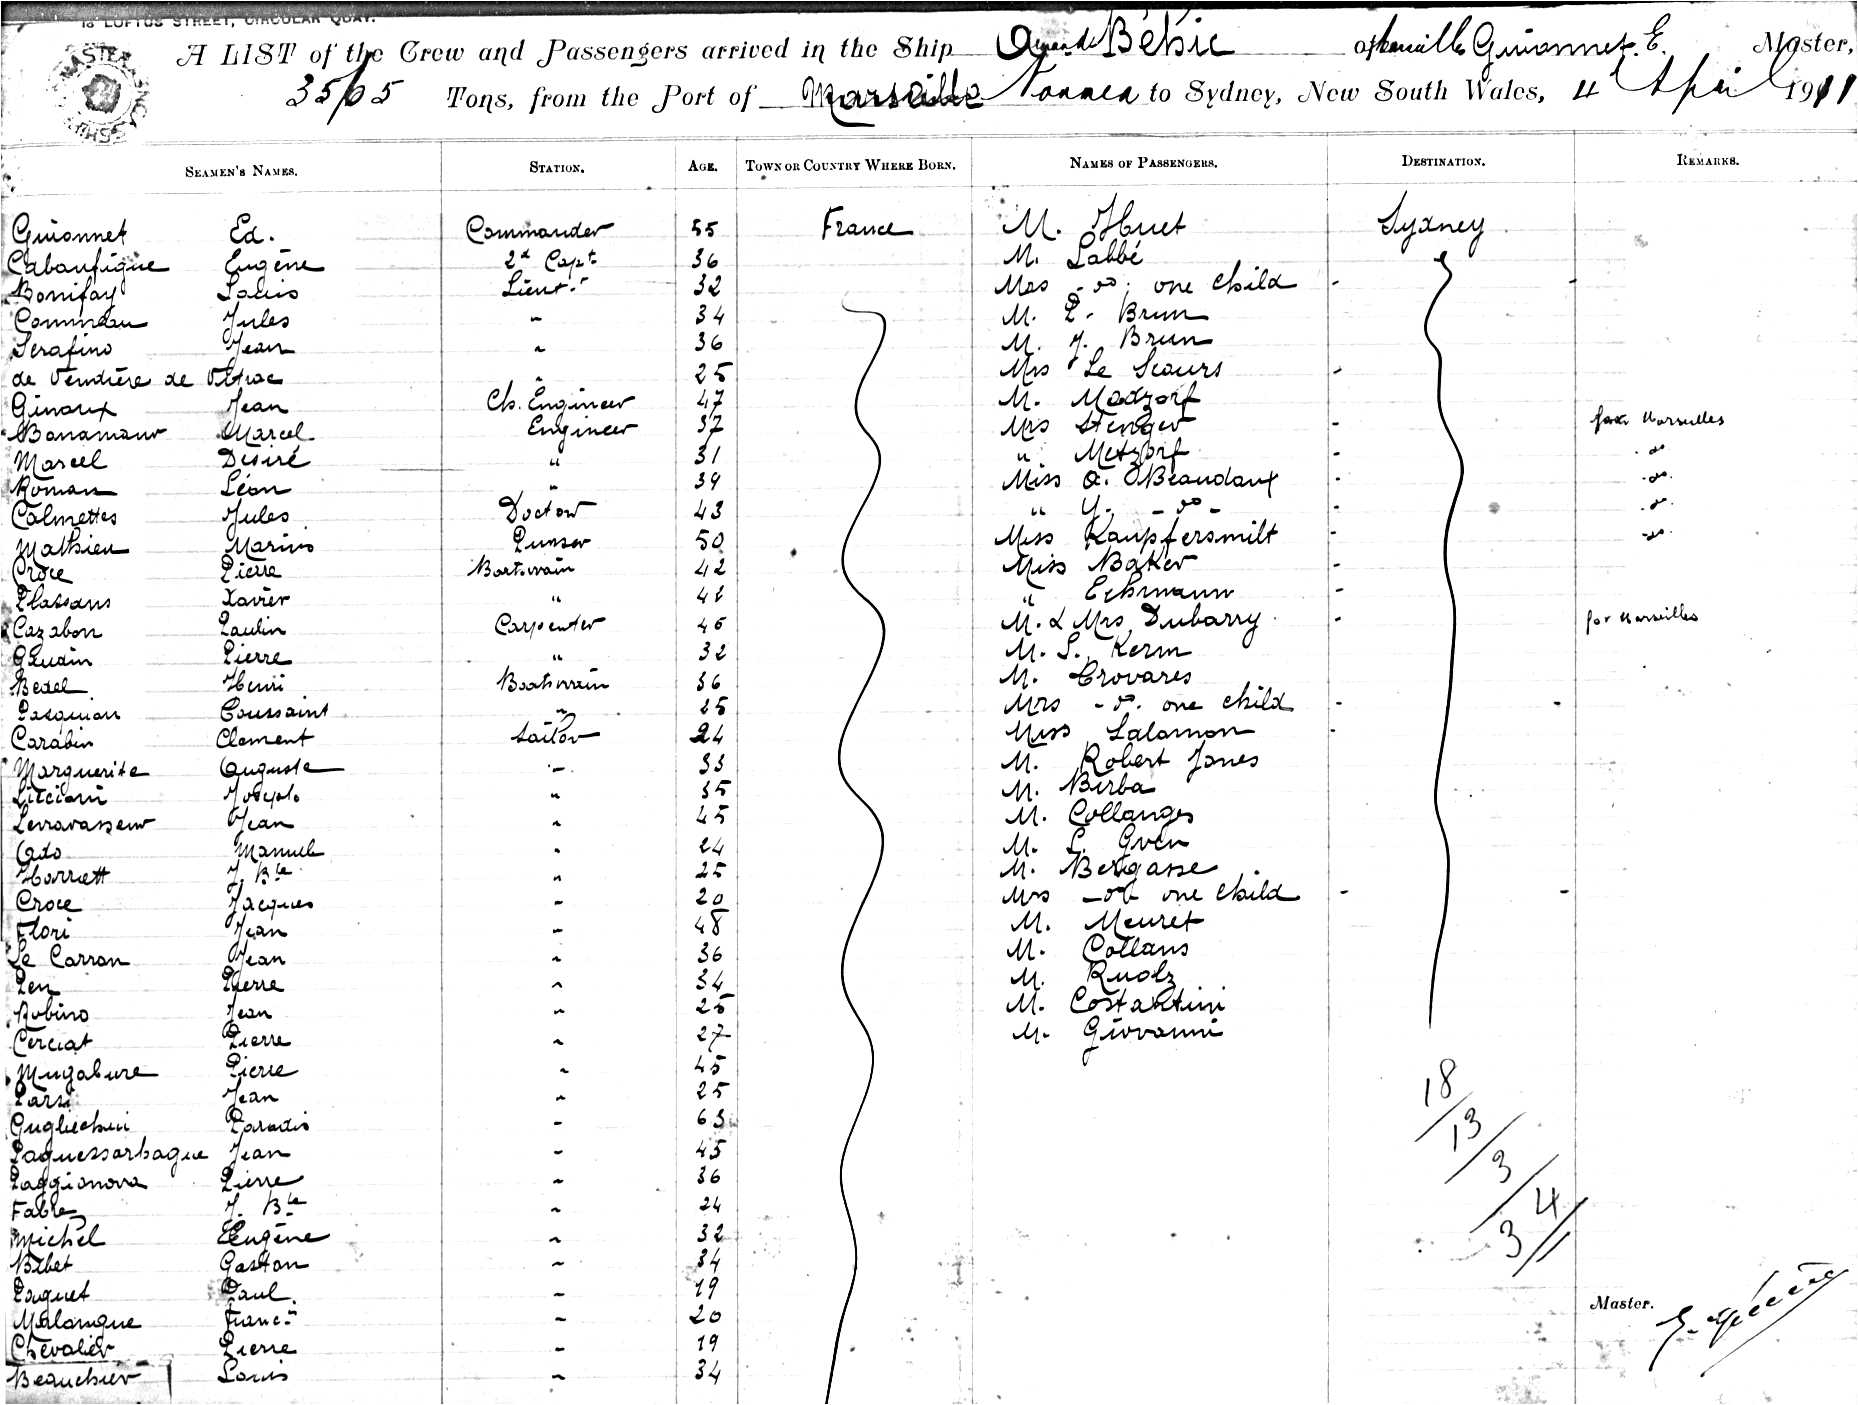 18 LOFTUS STREET, CIRCULAR QUAY.
A LIST of the Crew and Passengers arrived in the Ship Armand Béhic of Marseille Guionnet. E. Master,
3565 Tons, from the Port of Marseille Noumea to Sydney, New South Wales, 4 April 1911
SEAMEN'S NAMES. STATION. AGE. TOWN OR COUNTRY WHERE BORN. NAMES OF PASSENGERS. DESTINATION. REMARKS.
Guionnet Ed. Commander 55 France M. Huet Sydney
Cabanfigue Eugène 2d Capt. 36 M. Labbé
Bonifay Louis Lieut. 32 Mrs - do - one child -
Commeau Jules " 34 M. P. Brun
Serafino Jean " 36 M. J. Brun
de Vendière de Vitrac " 25 Mrs Le Scours -
Ginoux Jean Ch. Engineer 47 M. Modzorf
Marcel Engineer 37 Mrs Stenger - for Marseilles
Marcel Désiré " 31 " Metzorf - - do
Roman Léon " 39 Miss A. Beaudoux - - do -
Calmettes Jules Doctor 43 " Y. - do - - - do -
Mathieu Marius Purser 50 Miss Kaupfersmilt - - do -
Croce Pierre Boatswain 42 Miss Baker -
Plassans Xavier " 48 " Eckmann -
Cazabon Paulin Carpenter 46 M. & Mrs Dubarry - for Marseilles
Gaudin Pierre " 32 M. S. Kerm
Bedel Henri Boatswain 36 M. Crovares
Pasquian Toussaint " 25 Mrs - do. one child -
Carabin Clement Sailor 24 Miss Salomon -
Marguerite Auguste " 33 M. Robert Jones
Liccioni Joseph " 35 M. Birba
Levavasseur Jean " 45 M. Collanges
Ado Manuel " 24 M. L. Guen
Harriett J. Bte " 25 M. Bergasse
Croce Jacques " 20 Mrs - do - one child -
Flori Jean " 48 M. Meuret
Le Carran Jean " 36 M. Collans
Pen Pierre " 34 M. Ruolz
Robino Jean " 25 M. Costantini
Cerciat Pierre " 27 M. Giovanni
Mugabure Pierre " 45
Parsi Jean " 25
Gugliechini Paradis " 63
Paquessarbague Jean " 45
Paggionova Pierre " 36
Fabre J. Bte " 24
Michel Eugène " 32
Bibet Gaston " 34
Paquet Paul " 19
Malangue Franc. " 20
Chevalier Pierre " 19
Beauchier Louis " 34
18/13/3/4
3//
Master.